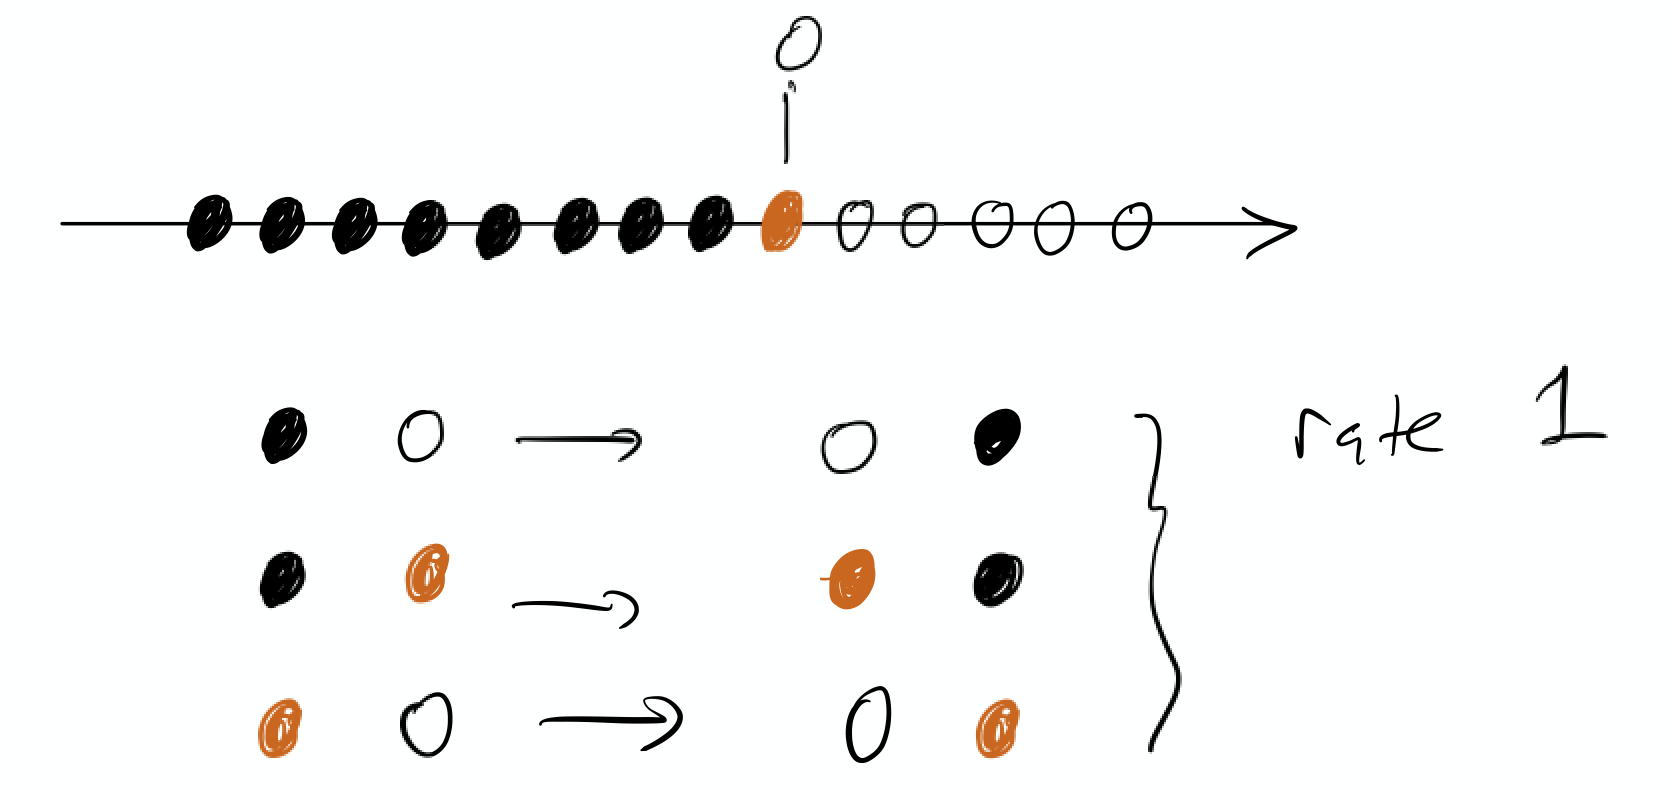 0
rate 1